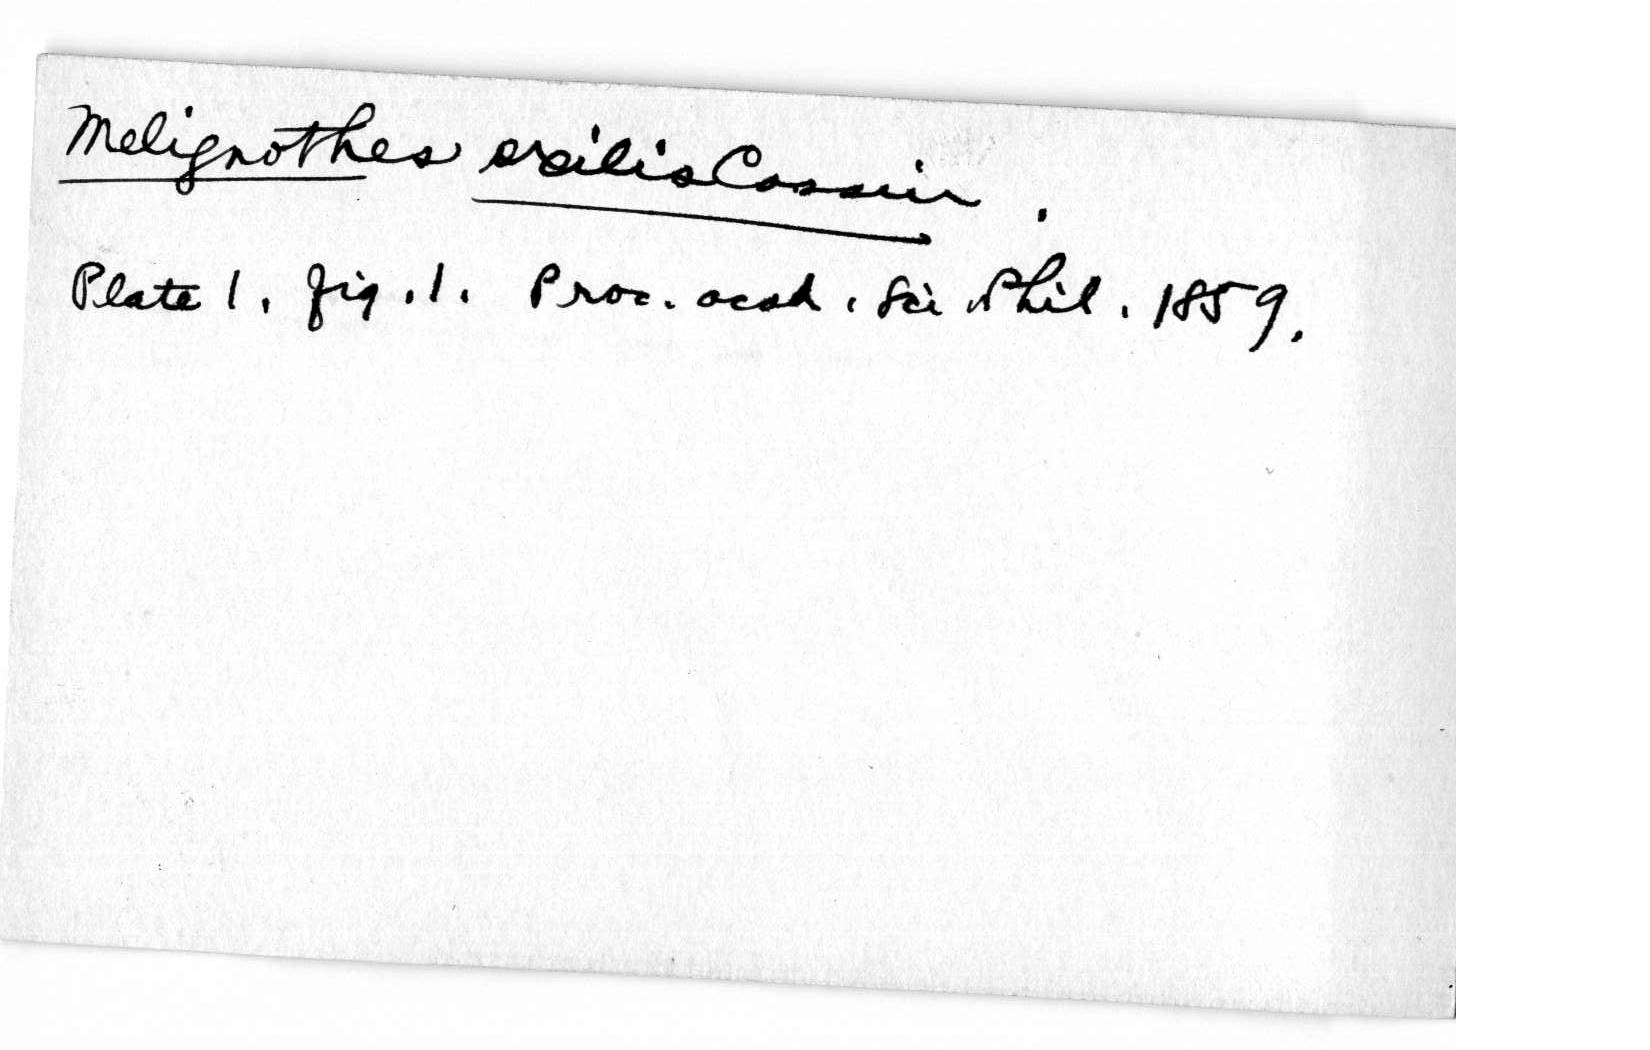 Melignothes exilis Cassin.
Plate 1, fig. 1. Proc. acad. Sci Phil. 1859.